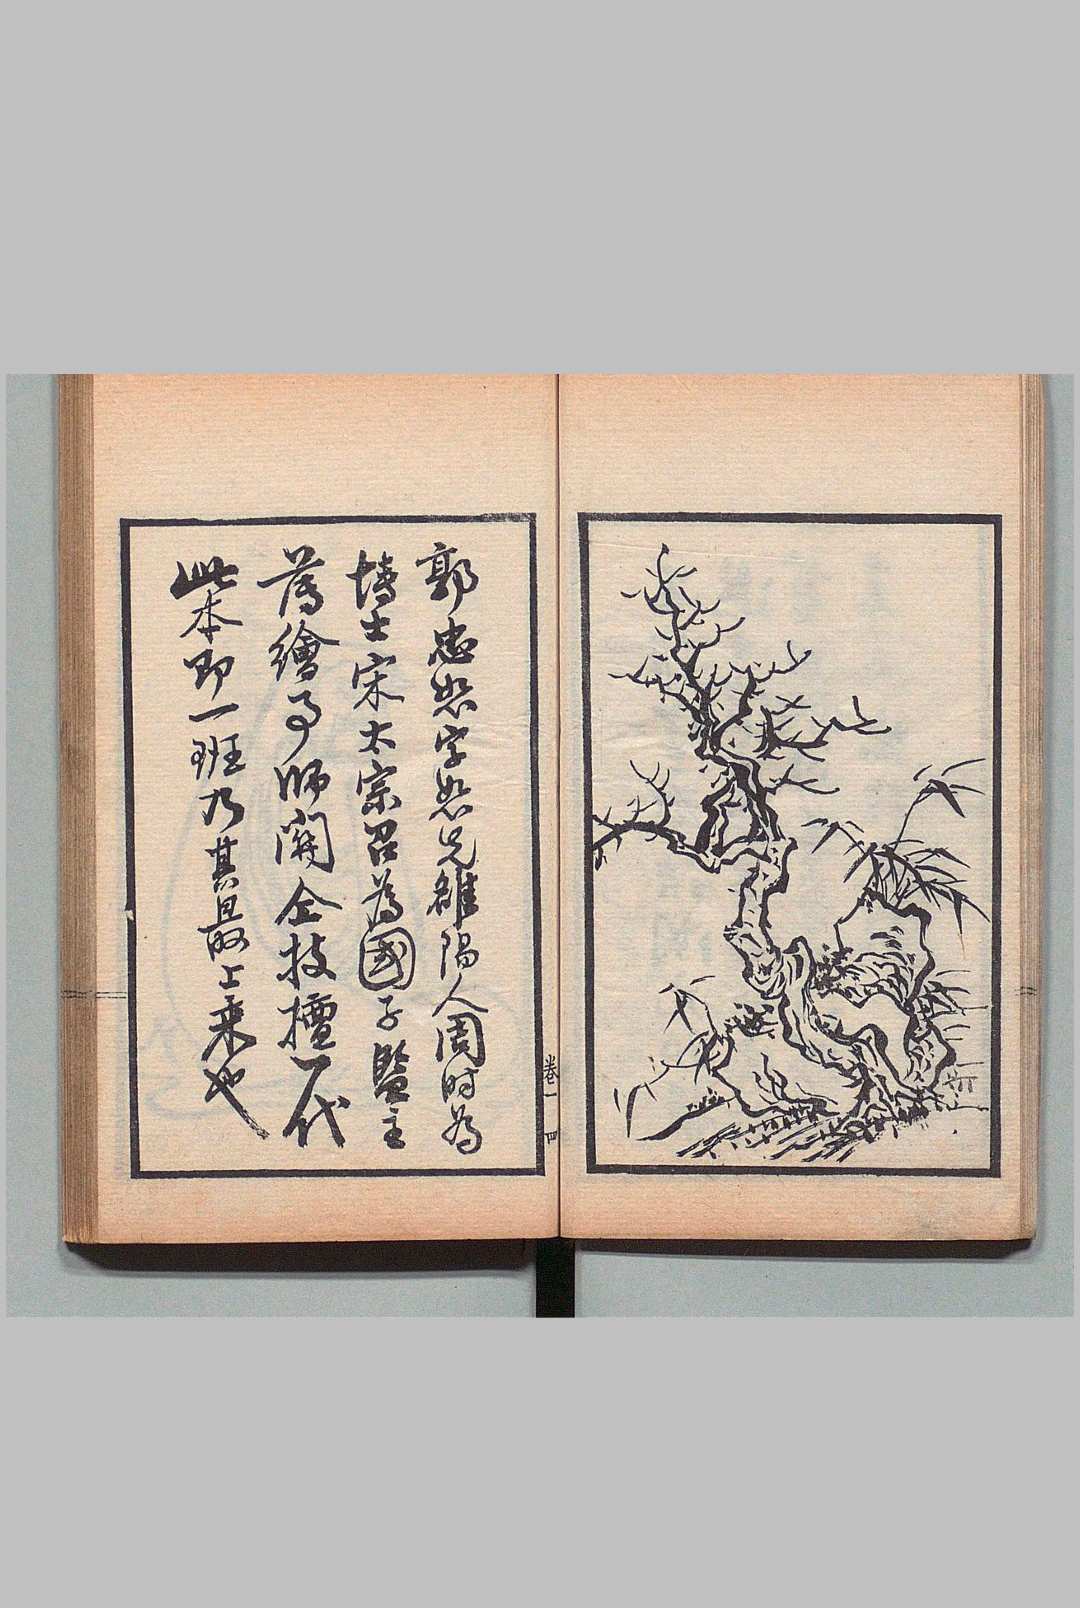 郭忠恕字恕先雒陽人周时为
博士宋太宗召為國子監主
薄繪事師關仝技擅一代
此本即一班乃其最上乘也
卷一
四